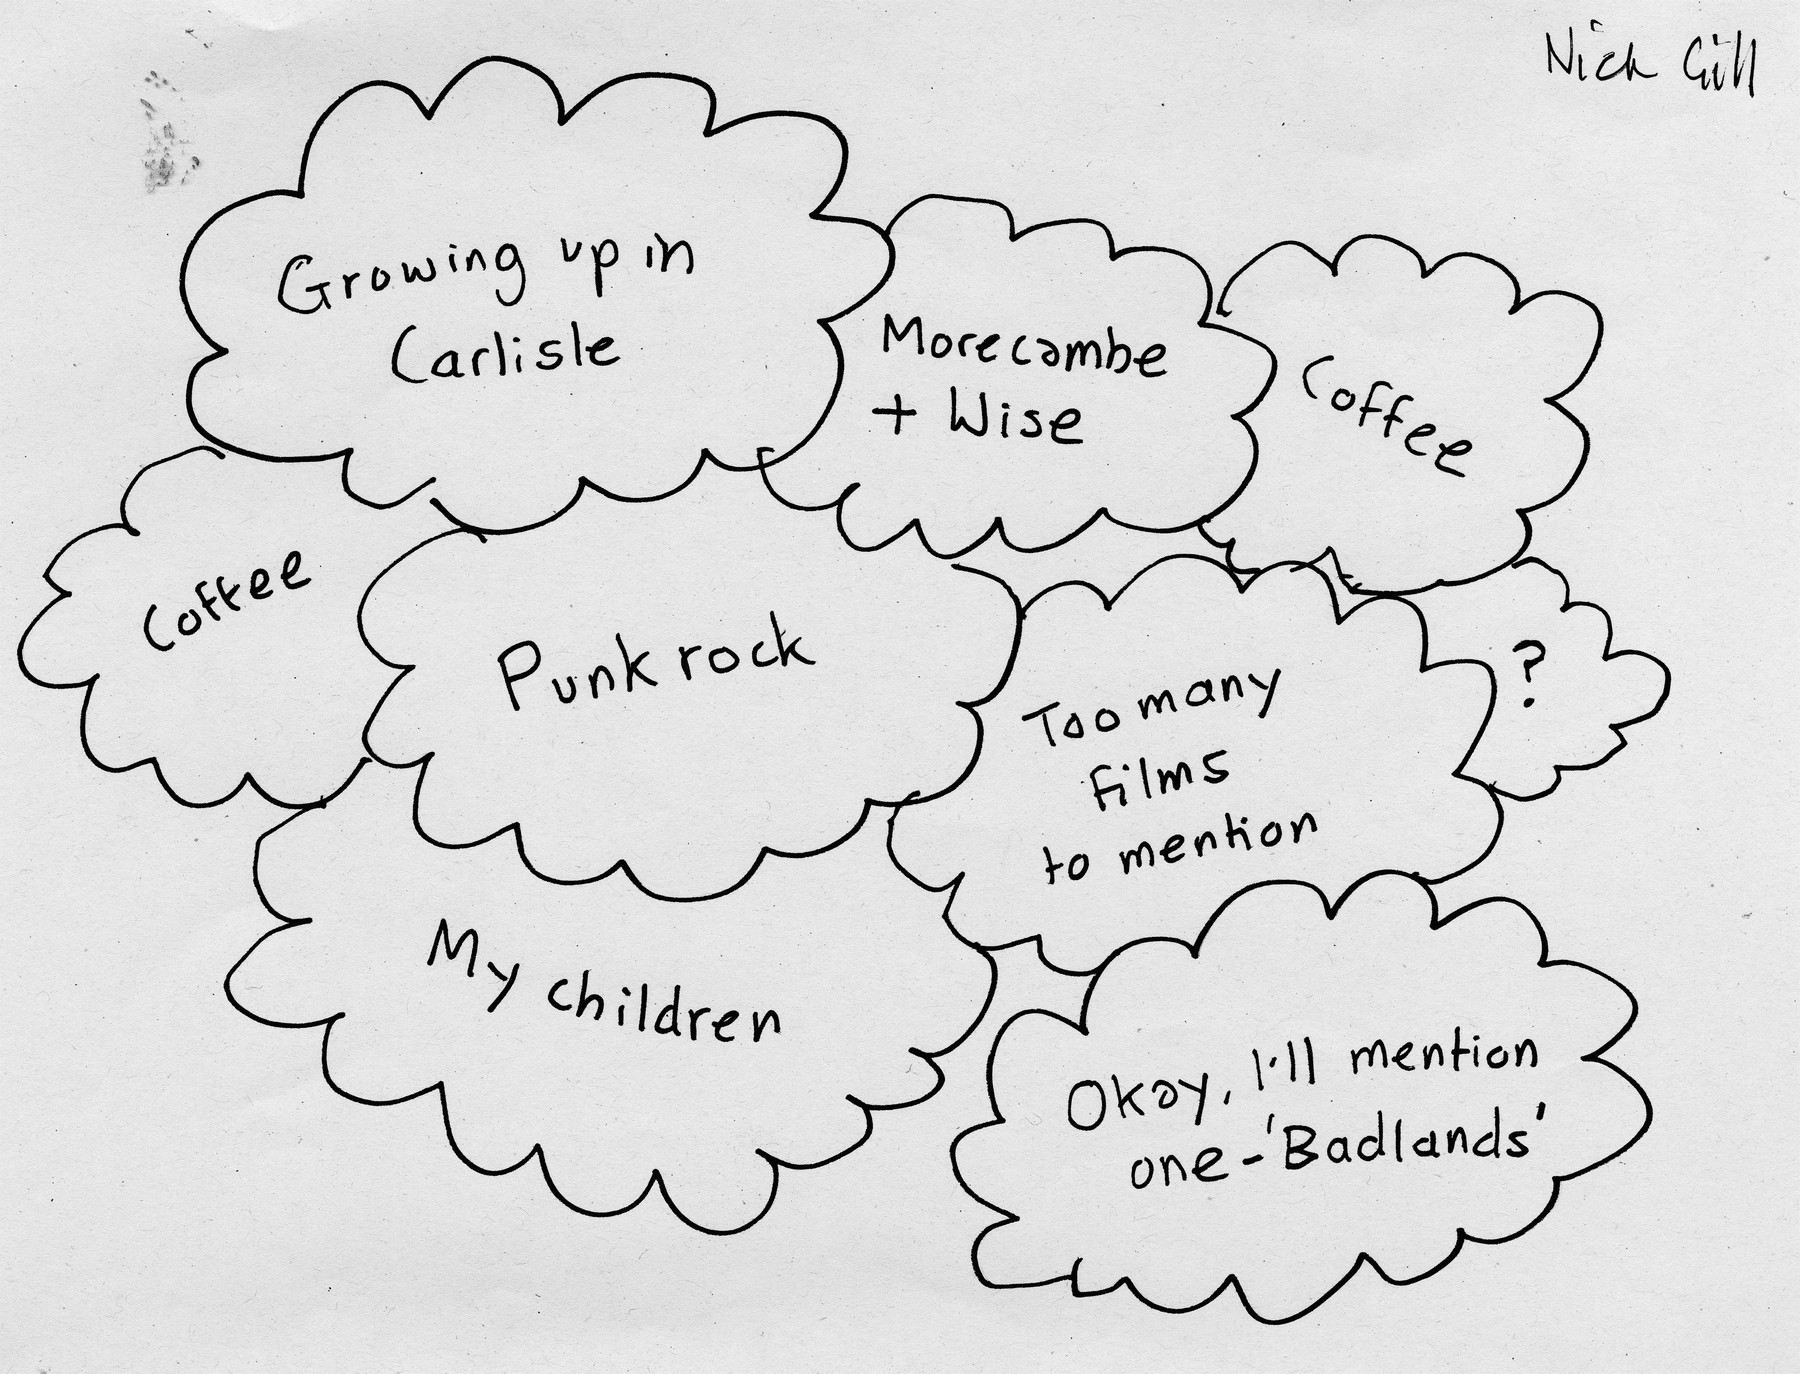 Nick Gill
Growing up in
Carlisle
Morecambe
+ Wise
Coffee
Coffee
Punk rock
Too many
films
to mention
?
My children
Okay, I'll mention
one - 'Badlands'